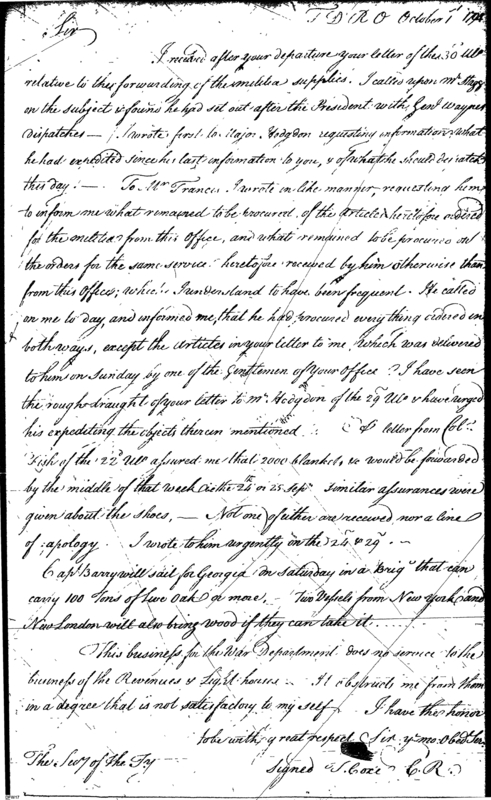 T D R O October 1st 1794
Sir
I received after your departure your letter of the 30 Ulto
relative to the forwarding of the militia supplies. I called upon Mr Stagg
on the subject & found he had set out after the President with Genl Waynes
dispatches — I wrote first to Major Hodgdon requesting information what
he had expedited since his last information to you, & of what he should dispatch
this day. — To Mr Francis I wrote in like manner, requesting him
to inform me what remained to be procured of the articles heretofore ordered
for the militia from this Office, and what remained to be procured on
the orders for the same service heretofore received by him otherwise than
from this Office; which I understand to have been frequent. He called
on me to day, and informed me, that he had procured every thing ordered in
both ways, except the articles in your letter to me, which was delivered
to him on Sunday by one of the Gentlemen of your Office I have seen
the rough draught of your letter to Mr Hodgdon of the 29 Ulto & have urged
his expediting the objects therein mentioned. A letter from Col.
Fish of the 22d Ulto assured me that 2000 blankets, &c would be forwarded
by the middle of that week the 24th or 25 Sepr Similar assurances were
given about the shoes, — Not one of either are received nor a line
of apology. I wrote to him urgently on the 24 & 29 . —
Capt Barry will sail for Georgia on Saturday in a Brig that can
carry 100 Tons of Live Oak or more. Two Vessels from New York and
New London will also bring wood if they can take it ....
This business for the War Department does no service to the
business of the Revenues & Light houses — It obstructs me from them
in a degree that is not satisfactory to my self I have the honor
to be with great respect Sir yr mo. Obedt Sert
The Secy of the Ty signed T. Coxe C. R.